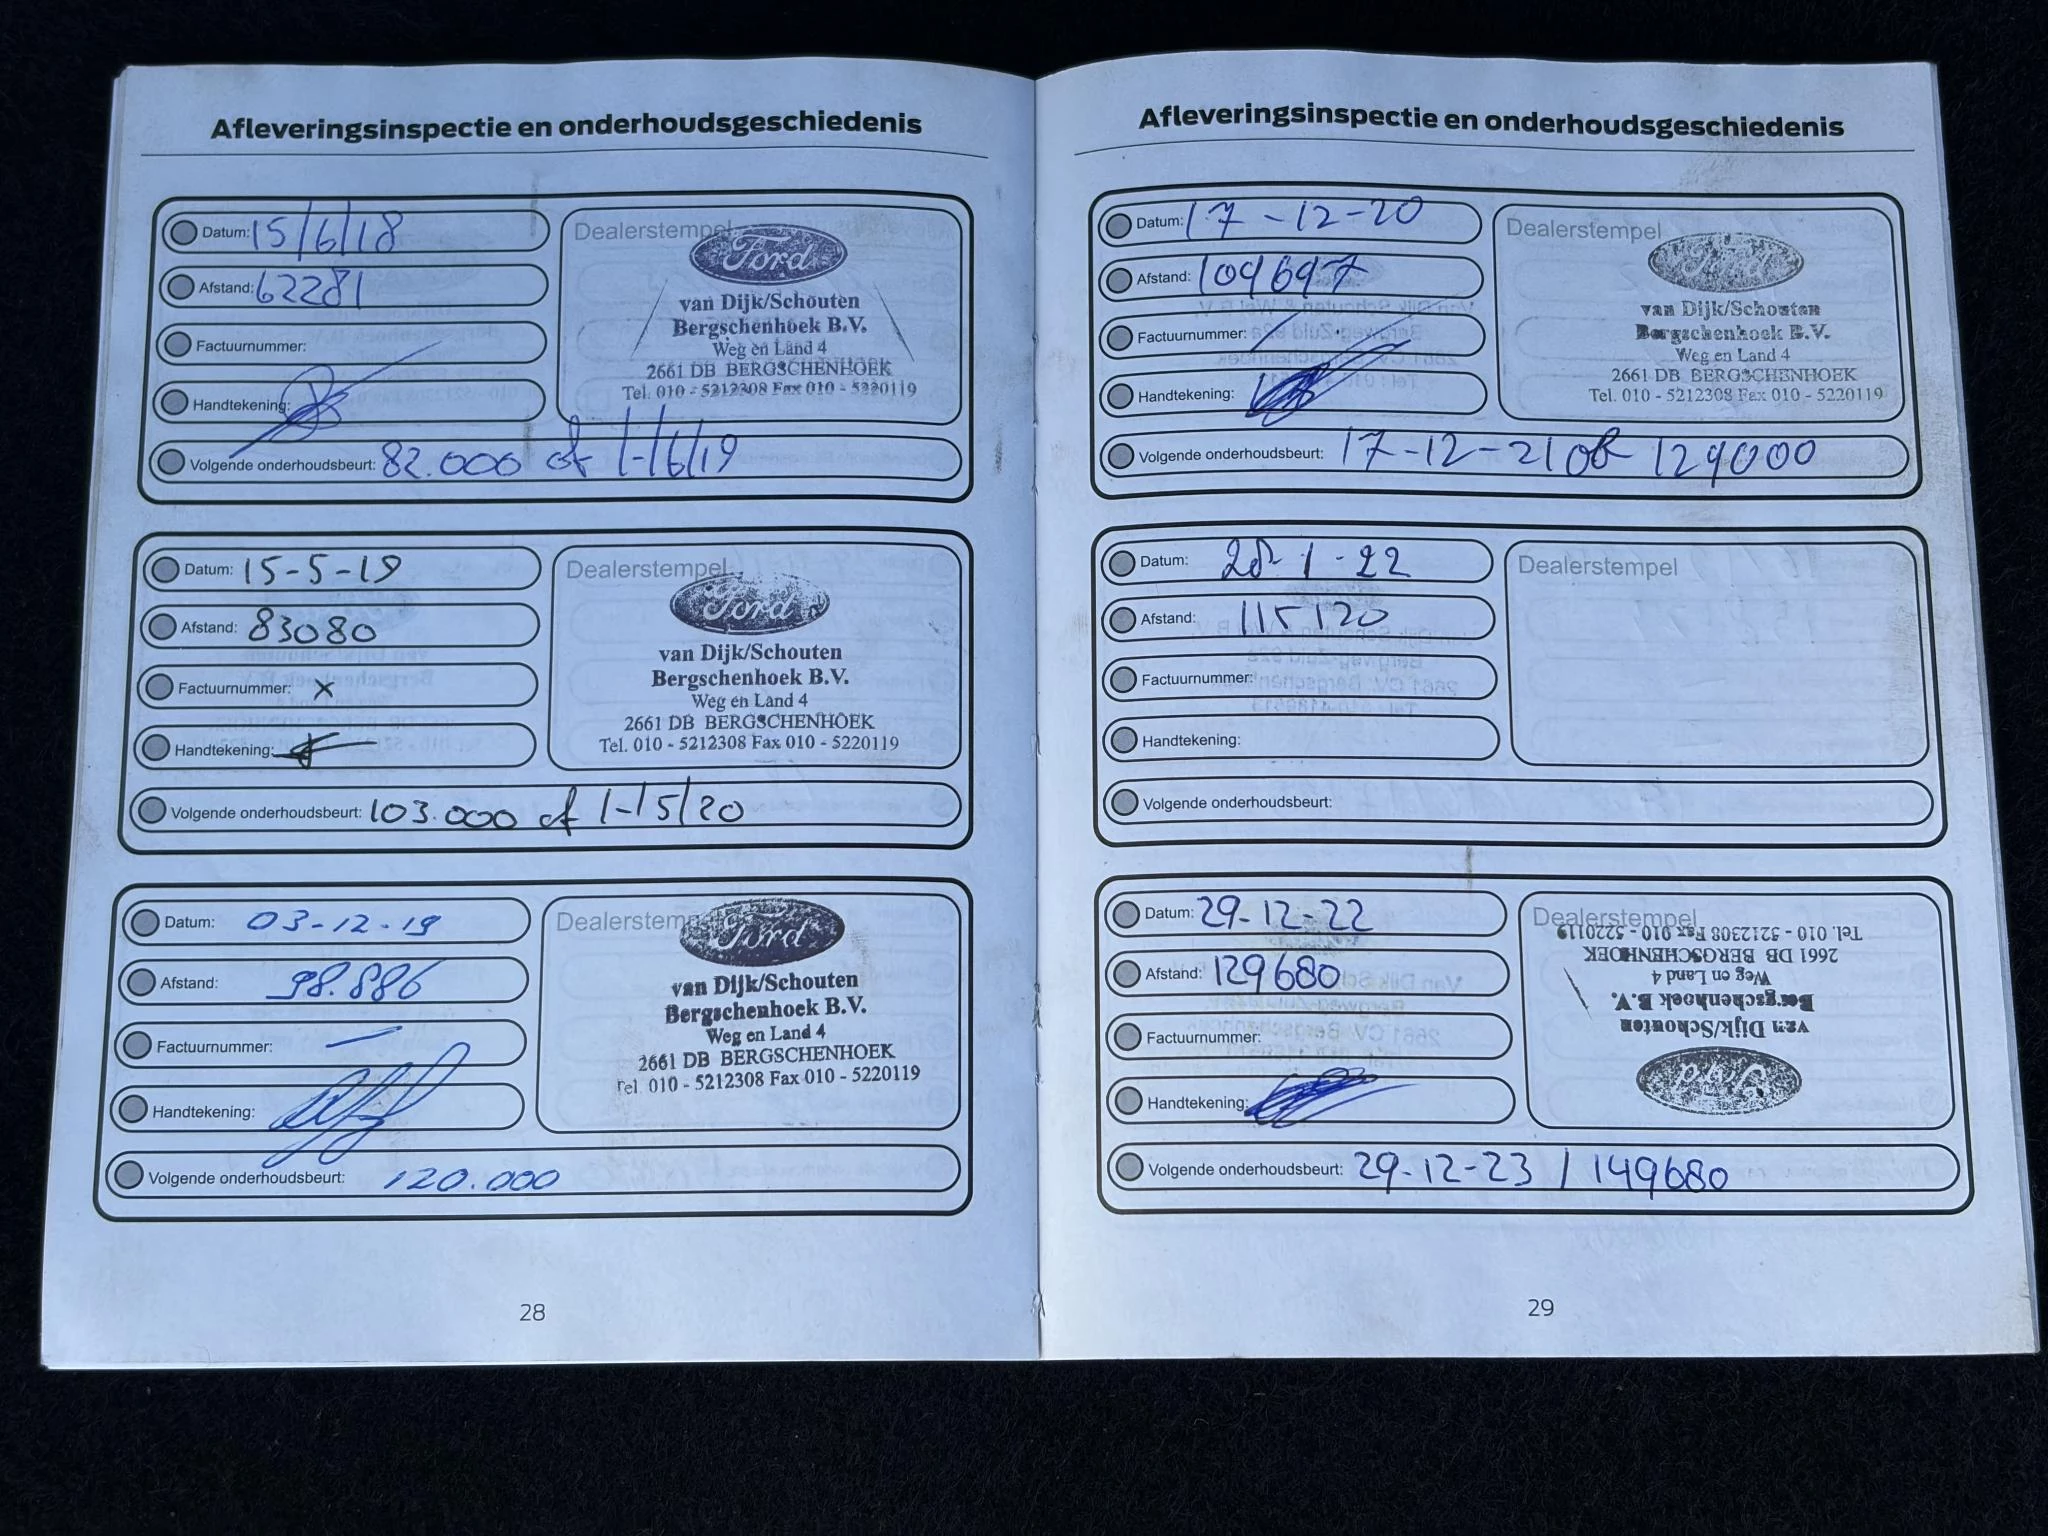 Afleveringsinspectie en onderhoudsgeschiedenis
Datum: 15/6/18
Afstand: 62281
Factuurnummer:
Handtekening:
Dealerstempel
Ford
van Dijk/Schouten
Bergschenhoek B.V.
Weg en Land 4
2661 DB BERGSCHENHOEK
Tel. 010 - 5212308 Fax 010 - 5220119
Volgende onderhoudsbeurt: 82.000 of 1-/6/19
Datum: 15-5-19
Afstand: 83080
Factuurnummer: x
Handtekening:
Dealerstempel
Ford
van Dijk/Schouten
Bergschenhoek B.V.
Weg en Land 4
2661 DB BERGSCHENHOEK
Tel. 010 - 5212308 Fax 010 - 5220119
Volgende onderhoudsbeurt: 103.000 of 1-/5/20
Datum: 03-12-19
Afstand: 98.886
Factuurnummer: —
Handtekening:
Dealerstempel
Ford
van Dijk/Schouten
Bergschenhoek B.V.
Weg en Land 4
2661 DB BERGSCHENHOEK
Tel. 010 - 5212308 Fax 010 - 5220119
Volgende onderhoudsbeurt: 120.000
28
Afleveringsinspectie en onderhoudsgeschiedenis
Datum: 17-12-20
Afstand: 109697
Factuurnummer:
Handtekening:
Dealerstempel
Ford
van Dijk/Schouten
Bergschenhoek B.V.
Weg en Land 4
2661 DB BERGSCHENHOEK
Tel. 010 - 5212308 Fax 010 - 5220119
Volgende onderhoudsbeurt: 17-12-21 of 129000
Datum: 28-1-22
Afstand: 115120
Factuurnummer:
Handtekening:
Dealerstempel
Volgende onderhoudsbeurt:
Datum: 29-12-22
Afstand: 129680
Factuurnummer:
Handtekening:
Dealerstempel
Ford
van Dijk/Schouten
Bergschenhoek B.V.
Weg en Land 4
2661 DB BERGSCHENHOEK
Tel. 010 - 5212308 Fax 010 - 5220119
Volgende onderhoudsbeurt: 29-12-23 / 149680
29